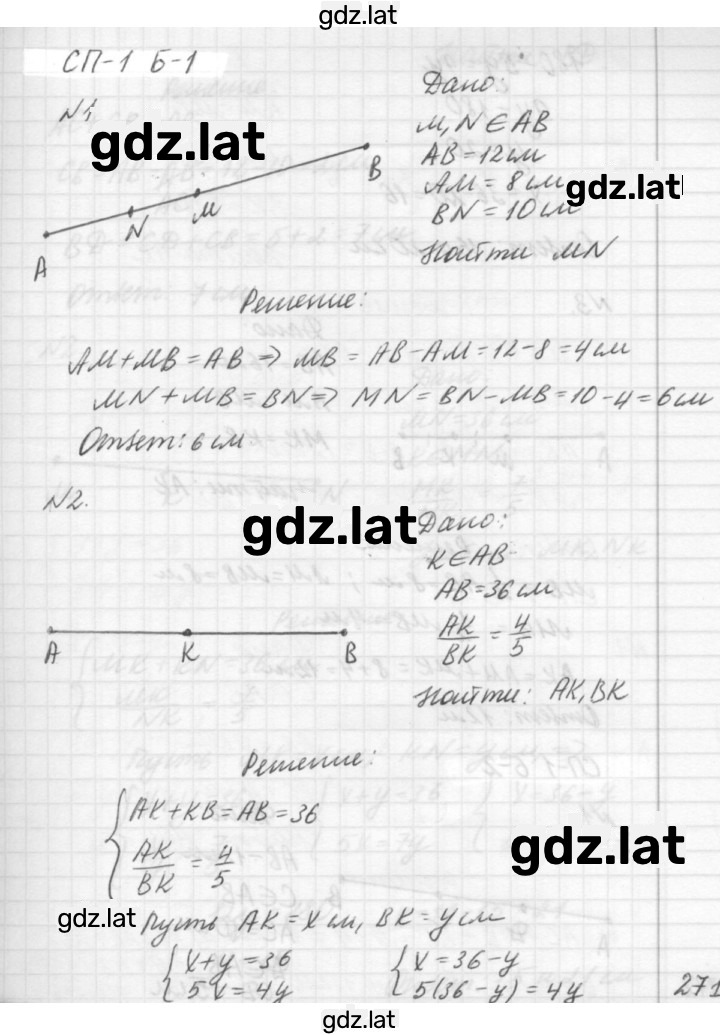 gdz.lat
СП-1 Б-1
N1.
Дано:
M, N ∈ AB
AB = 12 см
AM = 8 см
BN = 10 см
Найти MN
gdz.lat
gdz.lat
A N M B
Решение:
AM + MB = AB ⇒ MB = AB - AM = 12 - 8 = 4 см
MN + MB = BN ⇒ MN = BN - MB = 10 - 4 = 6 см
Ответ: 6 см
N2.
gdz.lat
Дано:
K ∈ AB
AB = 36 см
AK/BK = 4/5
Найти: AK, BK
A K B
Решение:
{ AK + KB = AB = 36
AK/BK = 4/5
gdz.lat
gdz.lat
Пусть AK = x см, BK = y см
{ x + y = 36 { x = 36 - y
5x = 4y 5(36 - y) = 4y
271
gdz.lat